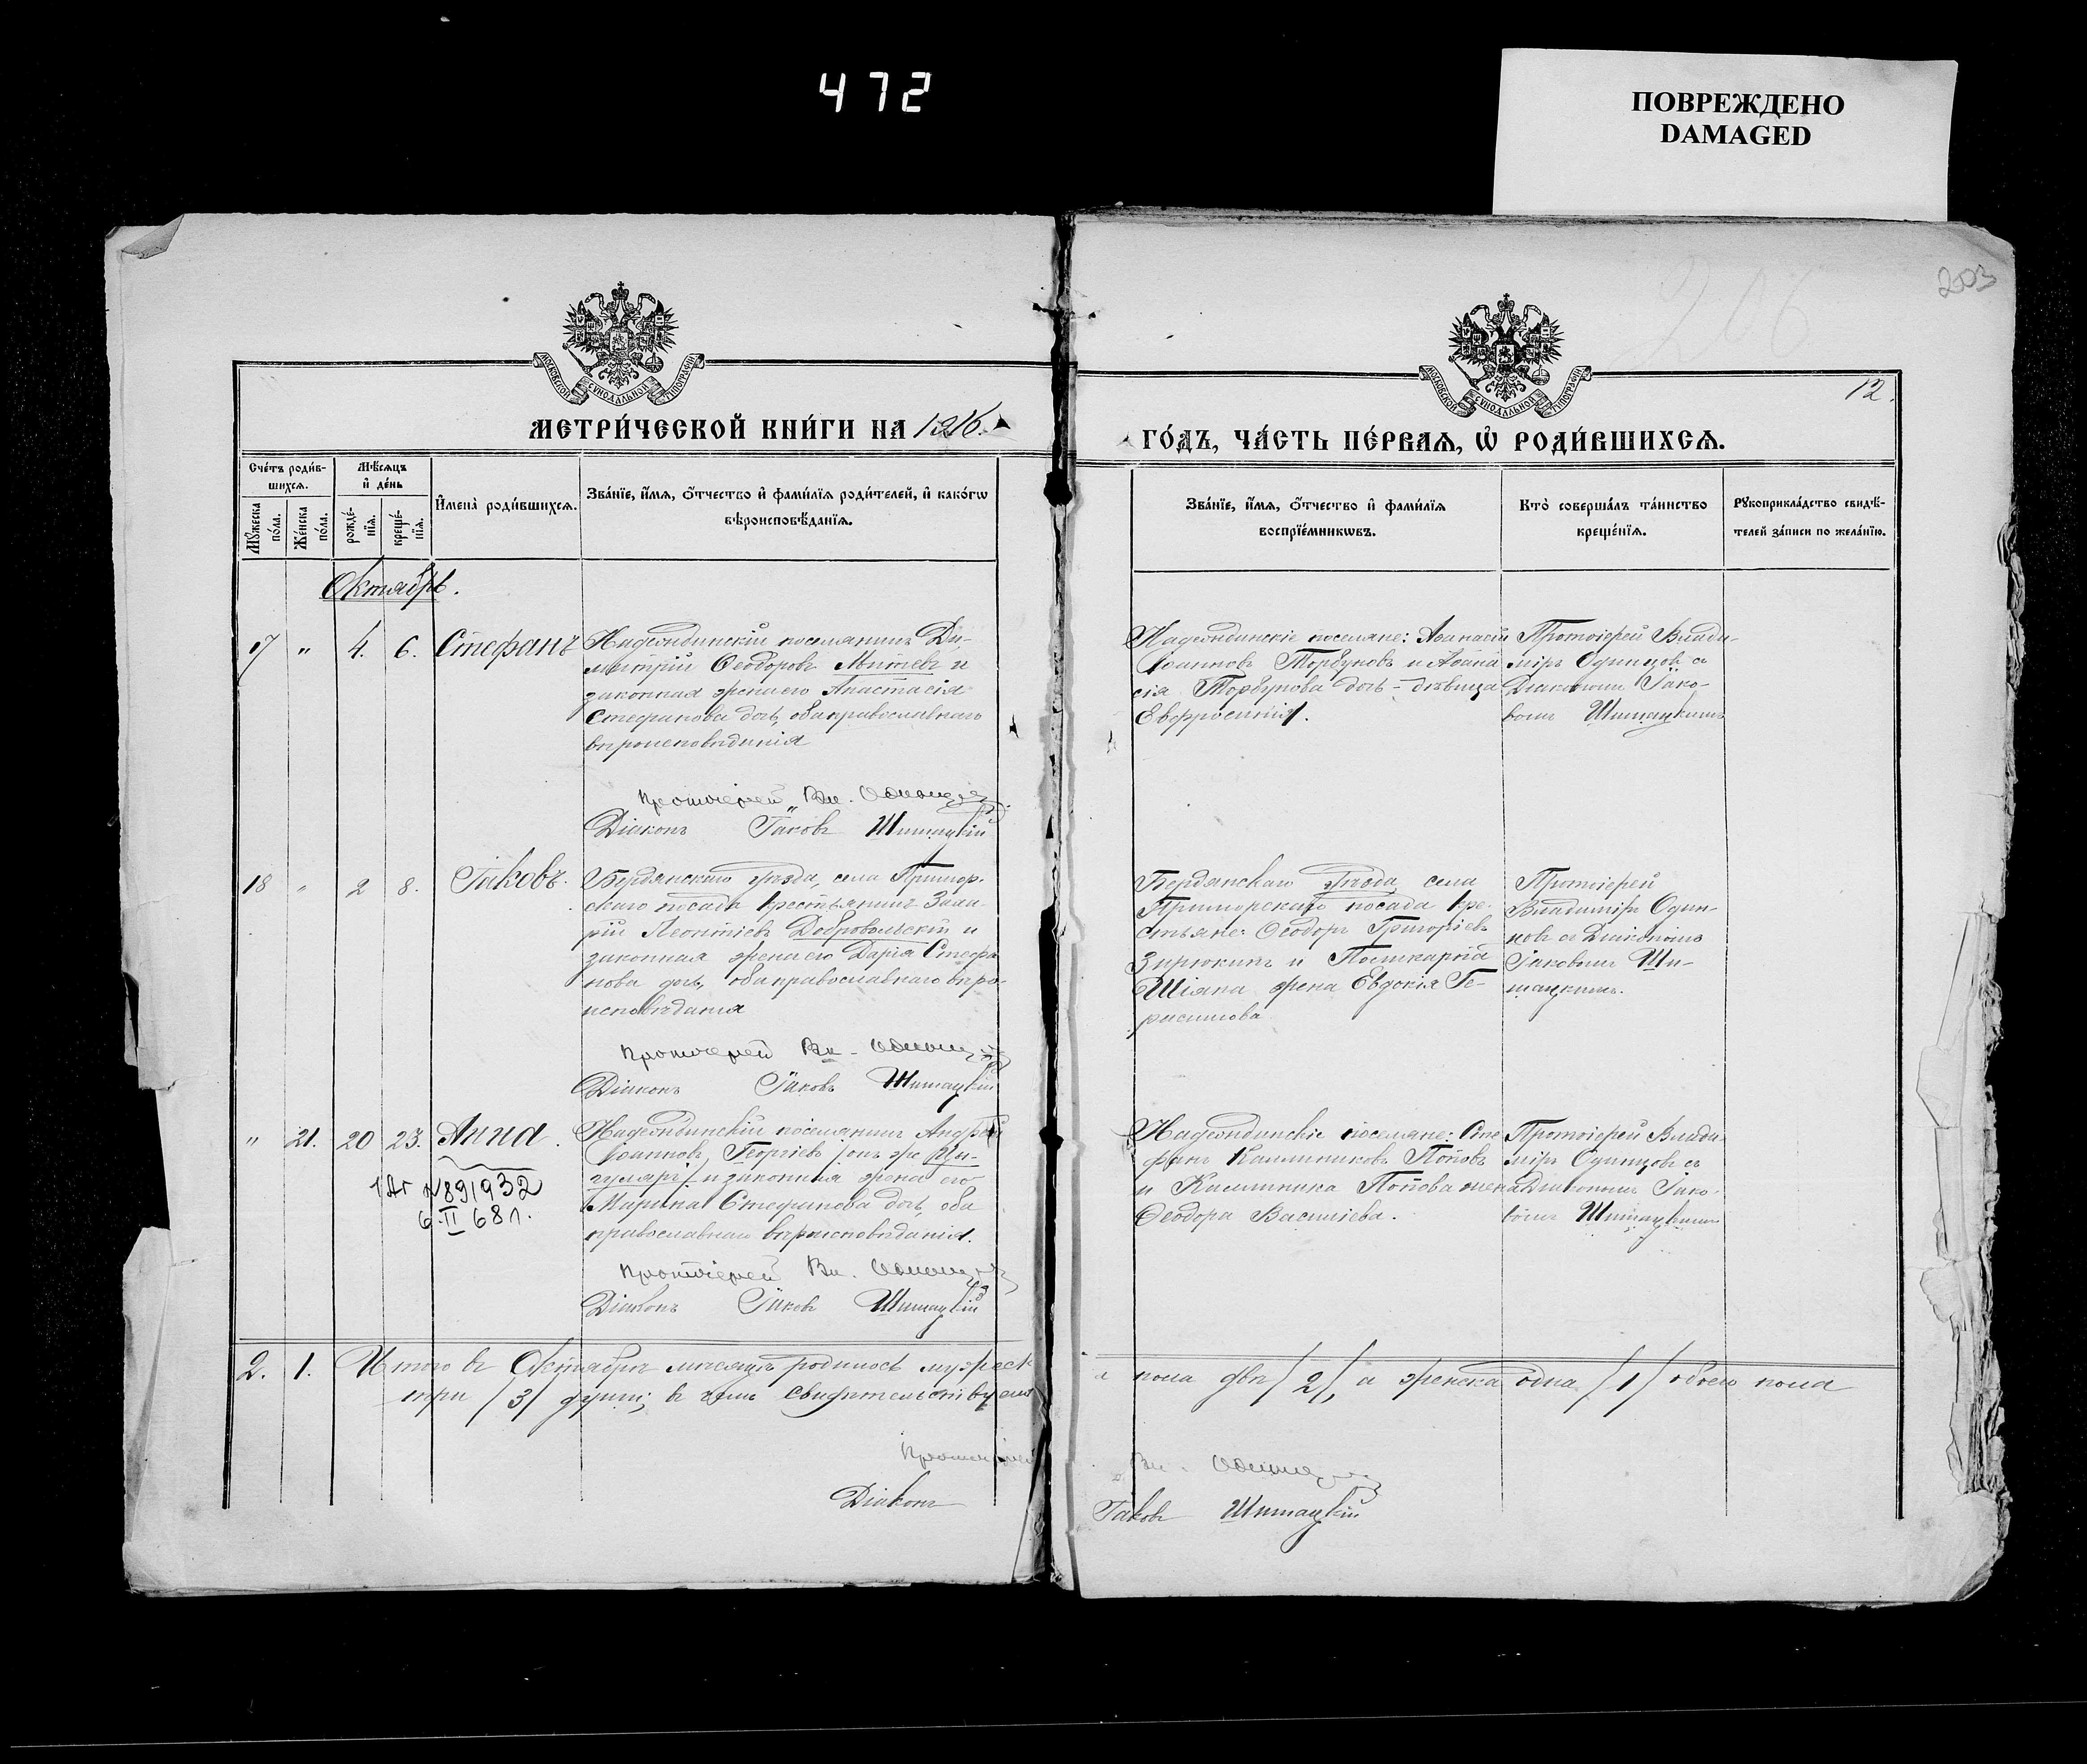 472
ПОВРЕЖДЕНО
DAMAGED
203
206
12.
МОСКОВСКОЙ СѴНОДАЛЬНОЙ ТИПОГРАФІИ
МОСКОВСКОЙ СѴНОДАЛЬНОЙ ТИПОГРАФІИ
МЕТРИ́ЧЕСКОЙ КНИ́ГИ НА 1916.
ГО́ДЪ, ЧА́СТЬ ПЕ́РВАѦ, Ѡ РОДИ́ВШИХСѦ.
Сче́тъ роди́в-
шихсѧ.
Мꙋжеска по́ла.
Же́нска по́ла.
Мѣ́сѧцъ
и де́нь
рожде́-
нїѧ.
креще́-
нїѧ.
И҆мена̀ роди́вшихсѧ.
Зва́нїе, и҆́мѧ, ѻ҆́тчество и҆ фами́лїѧ роди́телей, и҆ како́гѡ
вѣроисповѣ́данїѧ.
Зва́нїе, и҆́мѧ, ѻ҆́тчество и҆ фами́лїѧ
воспрїе́мникѡвъ.
Кто̀ соверша́лъ та́инство
креще́нїѧ.
Рꙋкоприкла́дство свидѣ́-
телей за́писи по жела́нїю.
Октябрь.
17 " 4. 6. Стефанъ
Надеждинскій поселянинъ Ди-
митрій Ѳеодоровъ Митевъ и
законная жена его Анастасія
Стефанова дочь, оба православнаго
вѣроисповѣданія
Протоіерей Вл. Одинцовъ
Діаконъ Іаковъ Шишацкій
Надеждинскіе поселяне: Аѳанасій
Іоанновъ Торбуковъ и Аѳана
сія Торбукова дочь - дѣвица
Евфросинія.
Протоіерей Влади-
міръ Одинцовъ съ
Діакономъ Іако-
вомъ Шишацкимъ
18 " 2 8. Іаковъ.
Бердянскаго уѣзда, села Примор-
скаго посада крестьянинъ Заха-
рій Леонтіевъ Добровольскій и
законная жена его Дарія Стефа
нова дочь, оба православнаго вѣро-
исповѣданія
Протоіерей Вл. Одинцовъ
Діаконъ Іаковъ Шишацкій
Бердянскаго уѣзда села
Приморскаго посада кре-
стьяне: Ѳеодоръ Григоріевъ
Зирюкинъ и Поликарпа
Шіяна жена Евдокія Ге-
расимова
Протоіерей
Владиміръ Один-
цовъ съ Діакономъ
Іаковомъ Ши-
шацкимъ.
" 21. 20 23. Анна.
№ 891932
6.II 68 г.
Надеждинскій поселянинъ Андрей
Іоанновъ Георгіевъ /онъ же Цы-
гуляръ/ и законная жена его
Марина Стефанова дочь, оба
православнаго вѣроисповѣданія.
Протоіерей Вл. Одинцовъ
Діаконъ Іаковъ Шишацкій
Надеждинскіе поселяне: Сте
фанъ Каллиниковъ Поповъ
и Каллиника Попова жена
Ѳеодора Василіева.
Протоіерей Влади-
міръ Одинцовъ съ
Діакономъ Іако-
вомъ Шишацкимъ
2. 1. Итого въ Октябрѣ мѣсяцѣ родилось мужеска пола двѣ /2/, а женска одна /1/ обоего пола
три /3/ души; въ чемъ свидѣтельствуемъ
Протоіерей Вл. Одинцовъ
Діаконъ Іаковъ Шишацкій